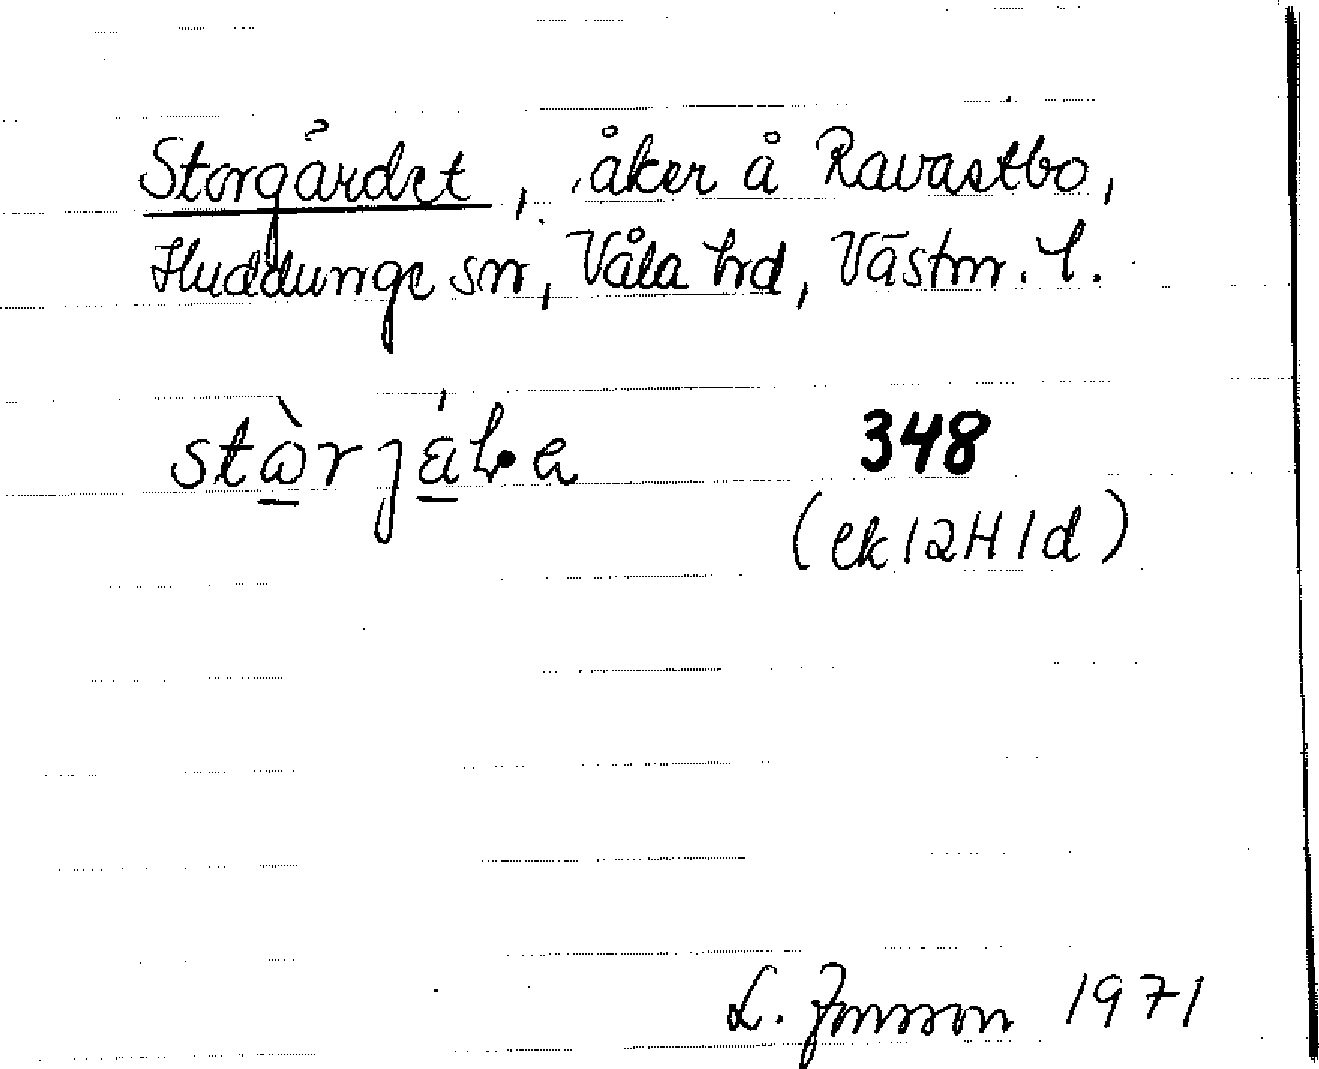 Storgärdet, åker å Ravastbo,
Huddunge sn, Våla hd, Västm. l.
348
(ek 12H1d)
L. Jonsson 1971